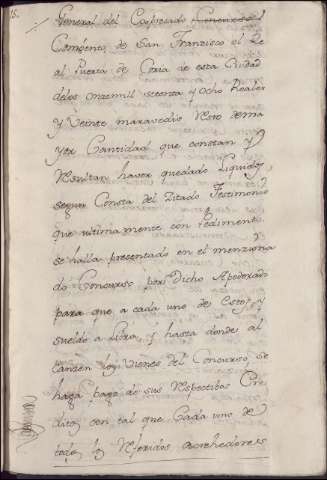 General del Expresado
Combento de San Francisco el Re
al Puerta de Coria de esta Ciudad
delos onzemil setenta y ocho Reales
y Veinte maravedis Resto dema
yor Cantidad que constan y
Resultan haver quedado Liquidos,
segun Consta del Zitado Testimonio
que ultimamente con Pedimento
se halla presentado en el menziona
do Concurso por Dicho Apoderado
para que a cada uno de Estos, y
sueldo a Libra, y hasta donde al
canzen los Vienes del Concurso, se
haga pago de sus Respectibos Cre
ditos con tal que Cada uno de
todos los Referidos Acrehedores